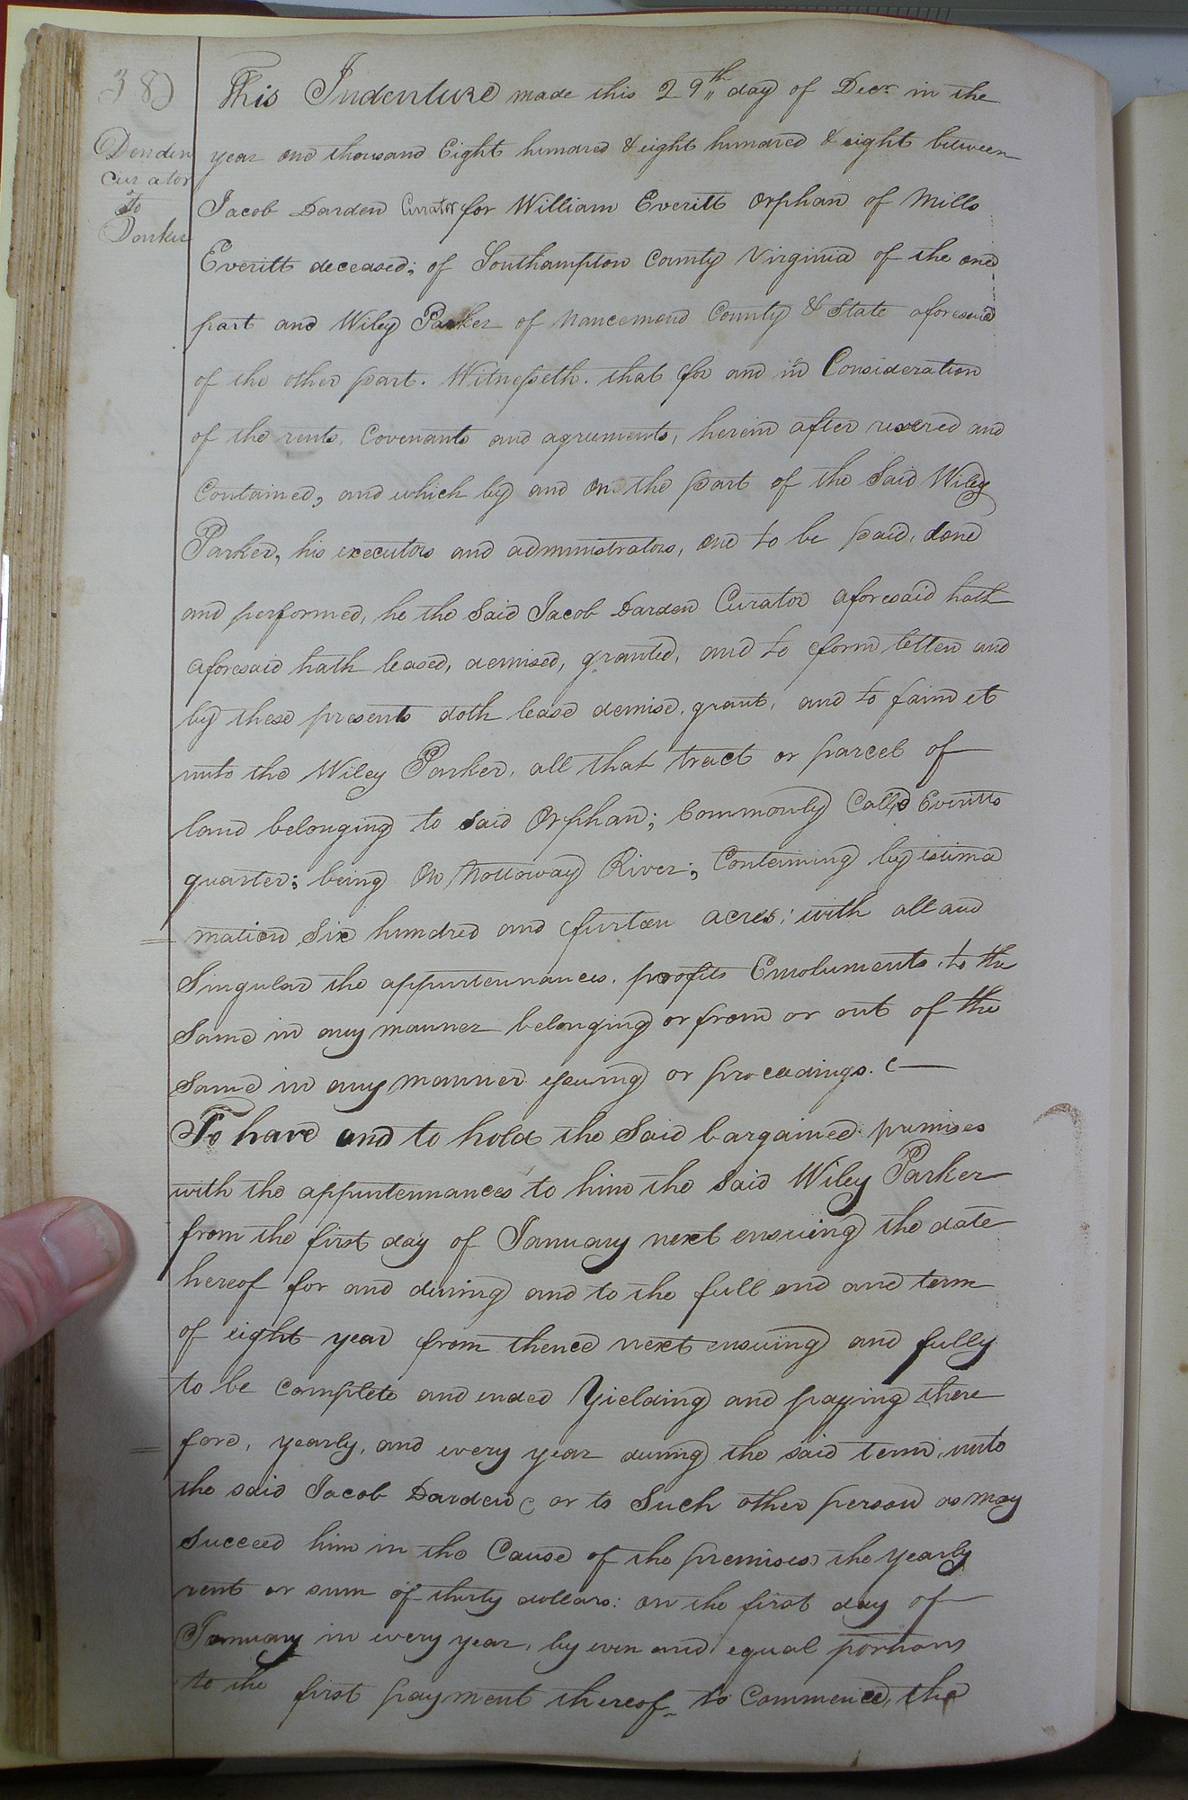 38
Darden
curator
To
Parker
This Indenture made this 29th day of Decr. in the
year one thousand Eight hundred & eight hundred & eight between
Jacob Darden Curator for William Everitt Orphan of Mills
Everitt deceased; of Southampton County Virginia of the one
part and Wiley Parker of Nancemond County & State aforesaid
of the other part. Witnesseth. that for and in Consideration
of the rents, Covenants and agreements, herein after reserved and
Contained, and which by and on the part of the Said Wiley
Parker, his executors and administrators, are to be paid, done
and performed, he the Said Jacob Darden Curator aforesaid hath
aforesaid hath leased, demised, granted, and to form letten and
by these presents doth lease demise, grant, and to farm let
unto the Wiley Parker, all that tract or parcel of
land belonging to said Orphan; Commonly Called Everitts
quarter; being On Nottoway River; Containing by estima
mation Six hundred and acres; with all and
Singular the appurtennances, profits Emoluments, to the
Same in any manner belonging or from or out of the
Same in any manner or proceedings.
To have and to hold the Said bargained premises
with the appurtennances to him the Said Wiley Parker
from the first day of January next ensuing the date
hereof for and during and to the full end and term
of eight year from thence next ensuing and fully
to be complete and ended Yielding and paying there
fore, yearly, and every year during the said term, unto
the said Jacob Darden or to Such other person as may
Succeed him in the Cause of the premises the yearly
rent or sum of thirty dollars: on the first day of
January in every year, by even and equal portions
to the first payment thereof to Commence, the